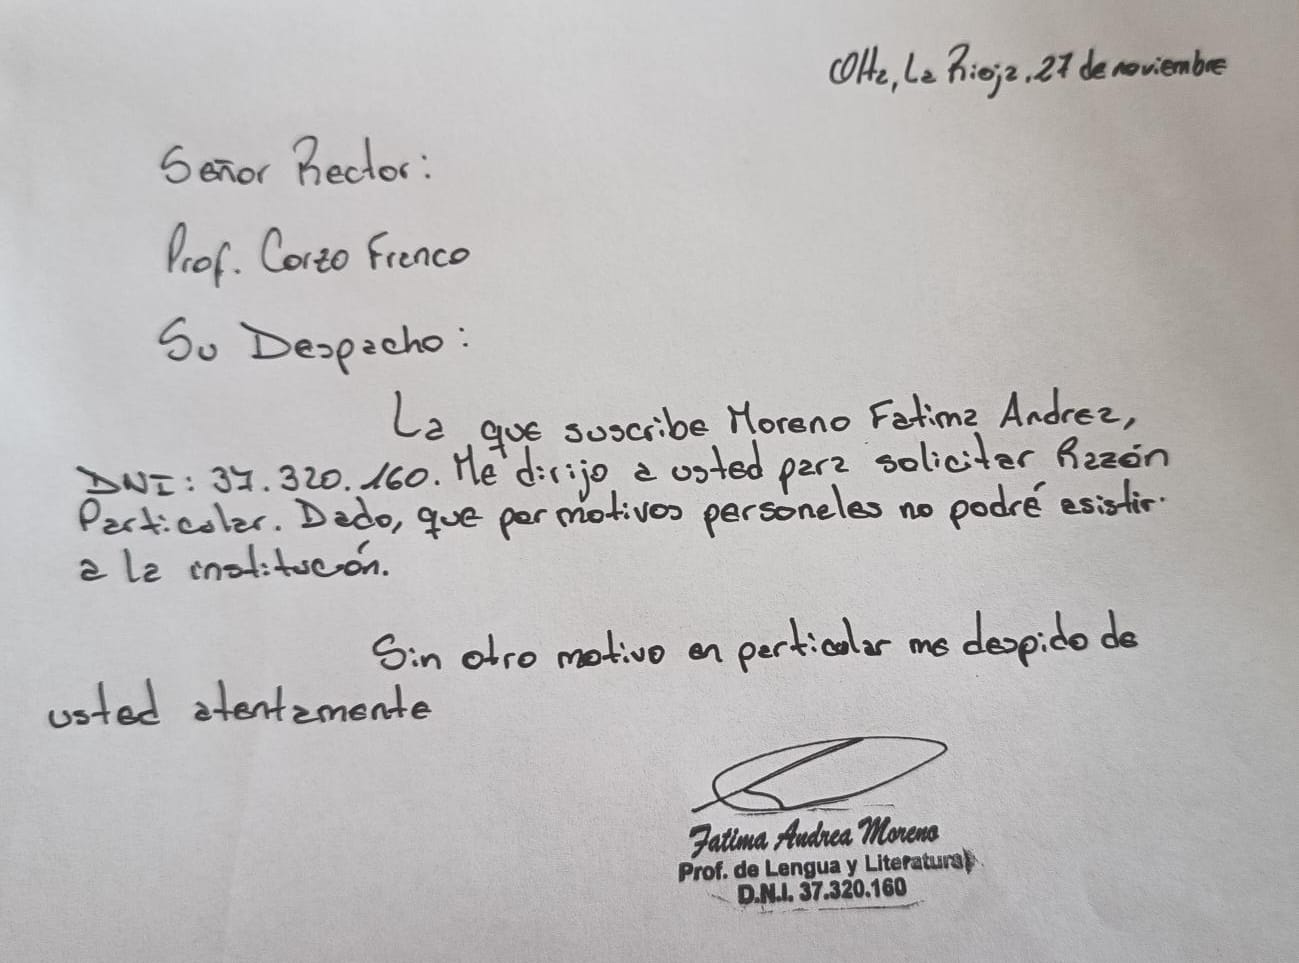 Olta, La Rioja, 27 de noviembre
Señor Rector:
Prof. Corzo Franco
Su Despacho:
La que suscribe Moreno Fatima Andrea,
DNI: 37.320.160. Me dirijo a usted para solicitar Razón
Particular. Dado, que por motivos personales no podré asistir
a la institución.
Sin otro motivo en particular me despido de
usted atentamente
Fatima Andrea Moreno
Prof. de Lengua y Literatura
D.N.I. 37.320.160